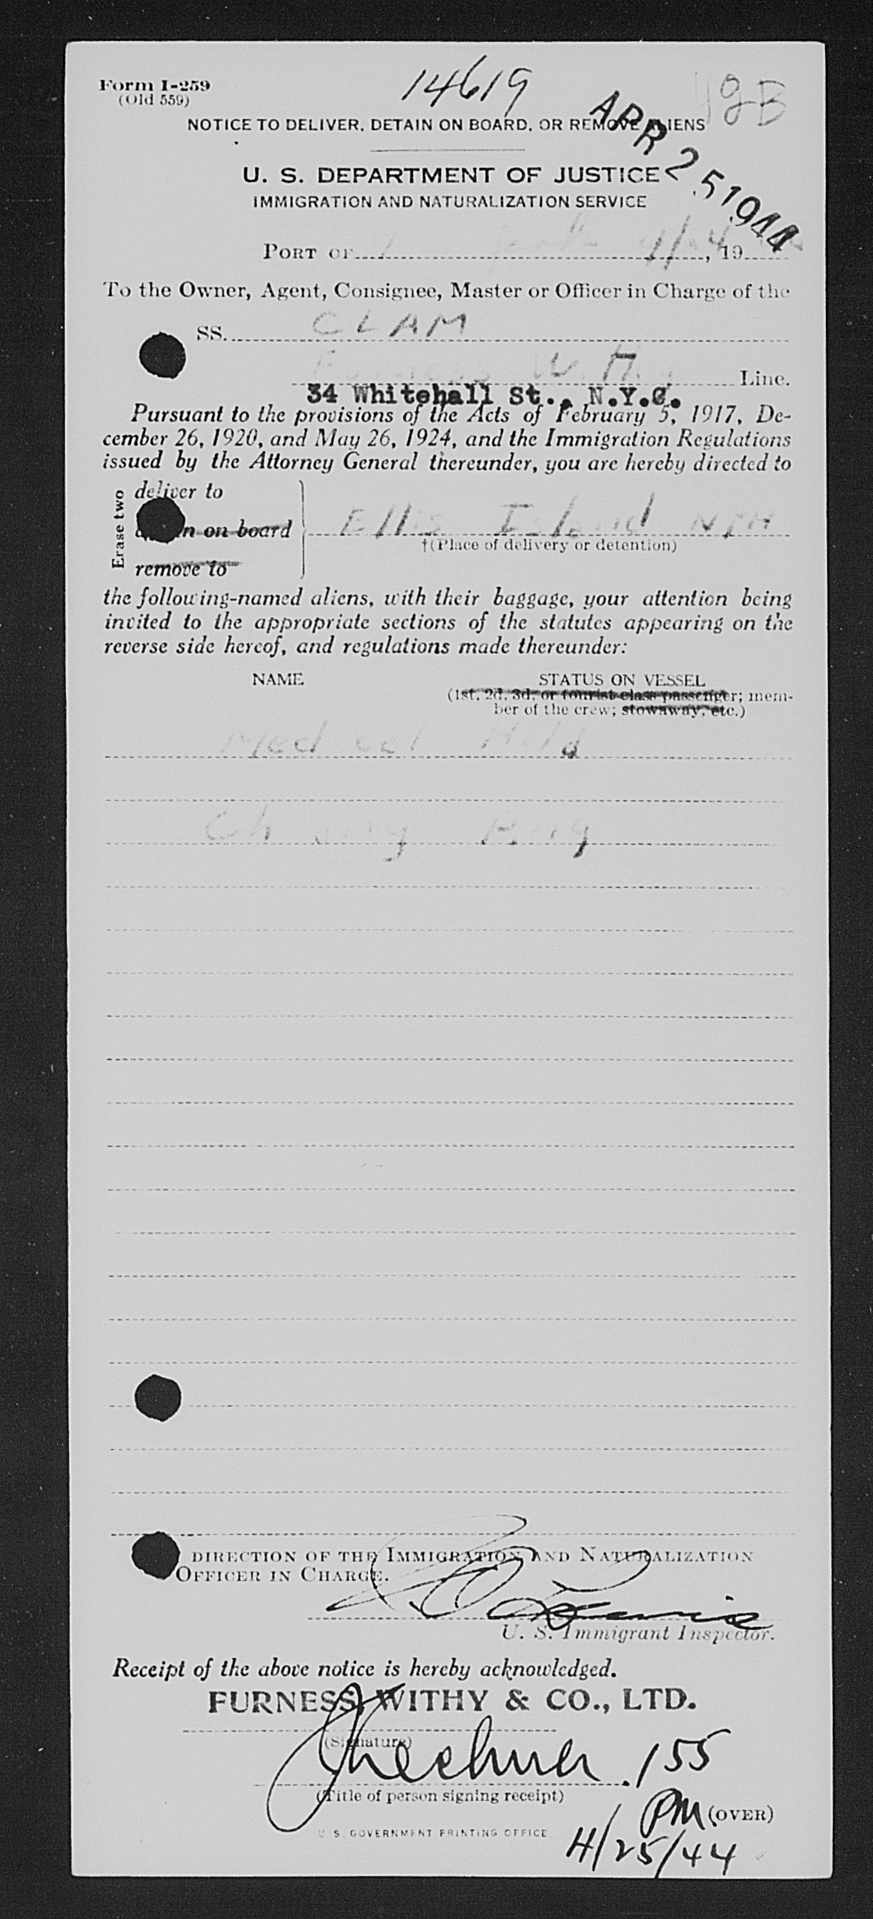 Form I-259
(Old 559)
14619
NOTICE TO DELIVER, DETAIN ON BOARD, OR REMOVE ALIENS
APR 25 1944
U. S. DEPARTMENT OF JUSTICE
IMMIGRATION AND NATURALIZATION SERVICE
PORT OF , 19
To the Owner, Agent, Consignee, Master or Officer in Charge of the
SS. CLAM
Line.
34 Whitehall St., N.Y.C.
Pursuant to the provisions of the Acts of February 5, 1917, De-
cember 26, 1920, and May 26, 1924, and the Immigration Regulations
issued by the Attorney General thereunder, you are hereby directed to
Erase two
deliver to
n on board
remove to
Ellis Island
†(Place of delivery or detention)
the following-named aliens, with their baggage, your attention being
invited to the appropriate sections of the statutes appearing on the
reverse side hereof, and regulations made thereunder:
NAME STATUS ON VESSEL
(1st, 2d, 3d, or tourist-class passenger; mem-
ber of the crew; stowaway, etc.)
Medical Held
DIRECTION OF THE IMMIGRATION AND NATURALIZATION
OFFICER IN CHARGE.
U. S. Immigrant Inspector.
Receipt of the above notice is hereby acknowledged.
FURNESS, WITHY & CO., LTD.
(Signature)
155
(Title of person signing receipt)
PM (OVER)
U. S. GOVERNMENT PRINTING OFFICE
4/25/44